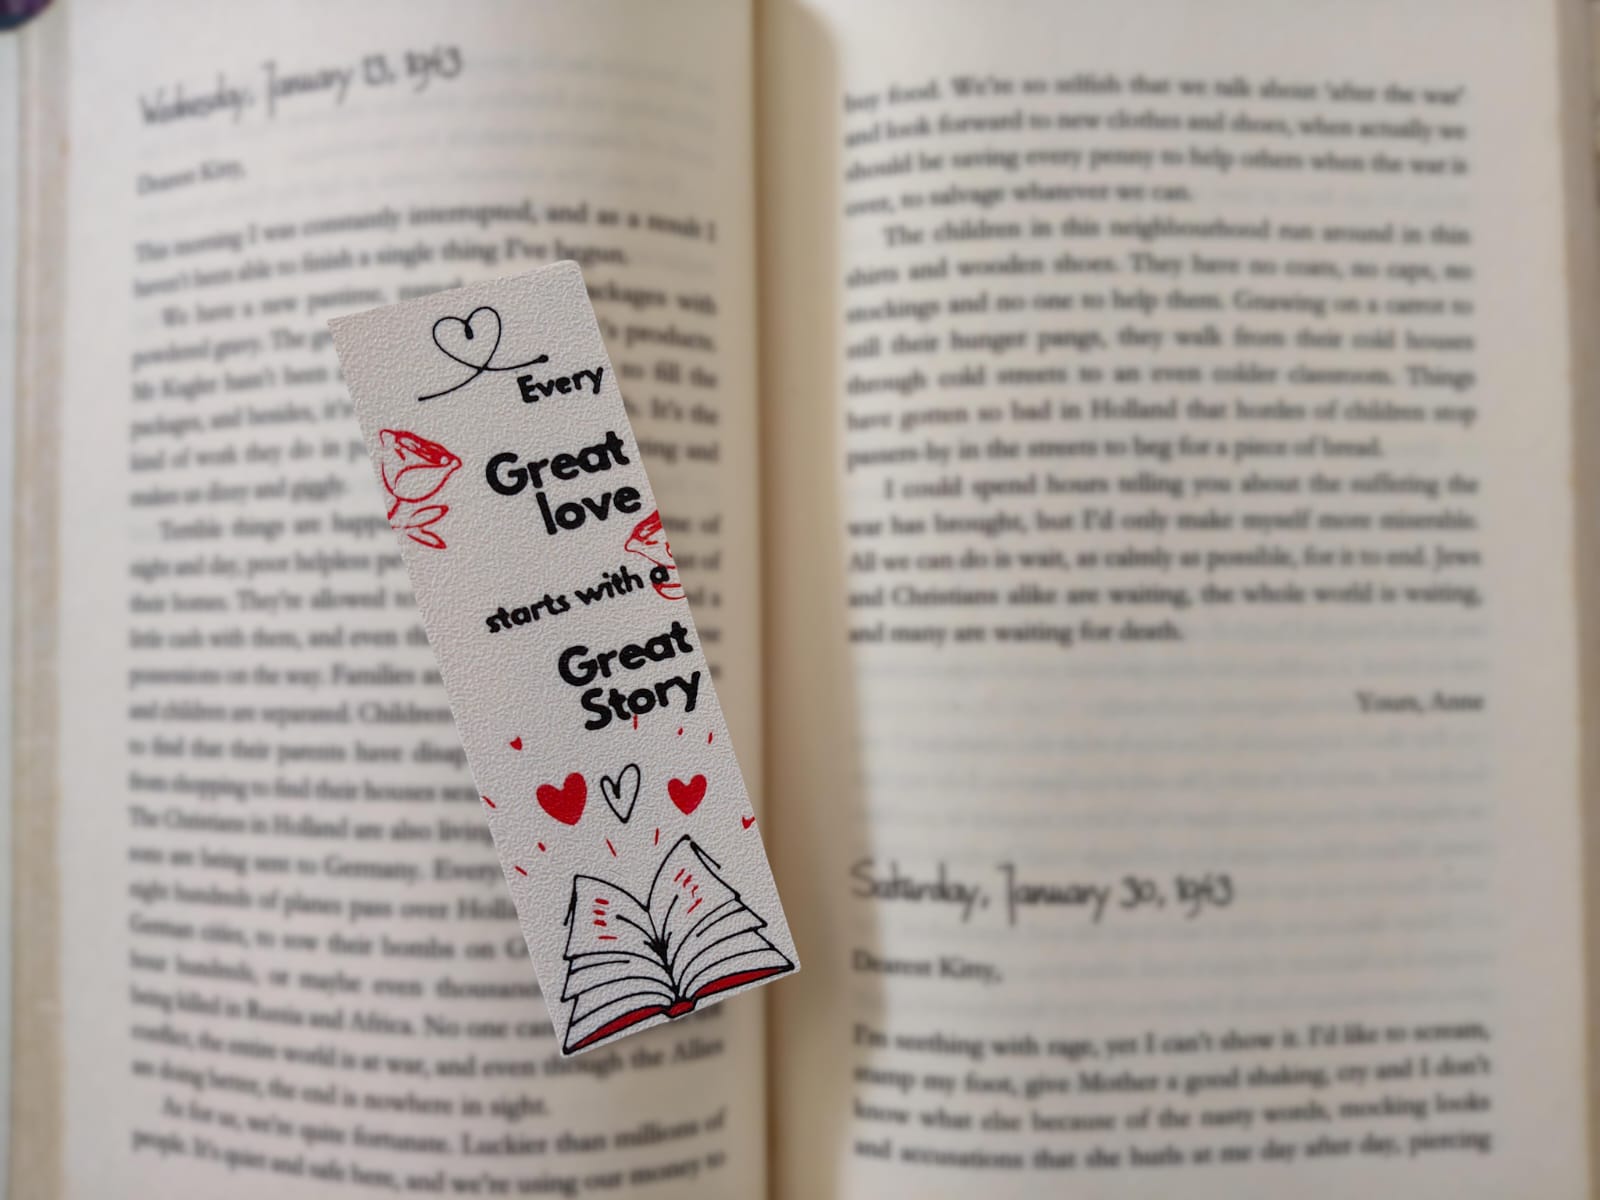 Wednesday, January 13, 1943
Dearest Kitty,
This morning I was constantly interrupted, and as a result I
haven't been able to finish a single thing I've begun.
We have a new pastime, packages with
powdered gravy. The products.
Mr Kugler hasn't been to fill the
packages, and besides, it's It's the
kind of work they do in and
makes us dizzy and giggly.
Terrible things are of
night and day, poor helpless of
their homes. They're allowed a
little cash with them, and even
possessions on the way. Families
and children are separated. Children
to find that their parents have
from shopping to find their houses
The Christians in Holland are also
sons are being sent to Germany. Every
night hundreds of planes pass over
German cities, to sow their bombs on
hour hundreds, or maybe even
being killed in Russia and Africa. No one can
conflict, the entire world is at war, and even though the Allies
are doing better, the end is nowhere in sight.
As for us, we're quite fortunate. Luckier than millions of
people. It's quiet and safe here, and we're using our money to
Every
Great
love
starts with a
Great
Story
buy food. We're so selfish that we talk about 'after the war'
and look forward to new clothes and shoes, when actually we
should be saving every penny to help others when the war is
over, to salvage whatever we can.
The children in this neighbourhood run around in thin
shirts and wooden shoes. They have no coats, no caps, no
stockings and no one to help them. Gnawing on a carrot to
still their hunger pangs, they walk from their cold houses
through cold streets to an even colder classroom. Things
have gotten so bad in Holland that hordes of children stop
passers-by in the streets to beg for a piece of bread.
I could spend hours telling you about the suffering the
war has brought, but I'd only make myself more miserable.
All we can do is wait, as calmly as possible, for it to end. Jews
and Christians alike are waiting, the whole world is waiting,
and many are waiting for death.
Yours, Anne
Saturday, January 30, 1943
Dearest Kitty,
I'm seething with rage, yet I can't show it. I'd like to scream,
stamp my foot, give Mother a good shaking, cry and I don't
know what else because of the nasty words, mocking looks
and accusations that she hurls at me day after day, piercing